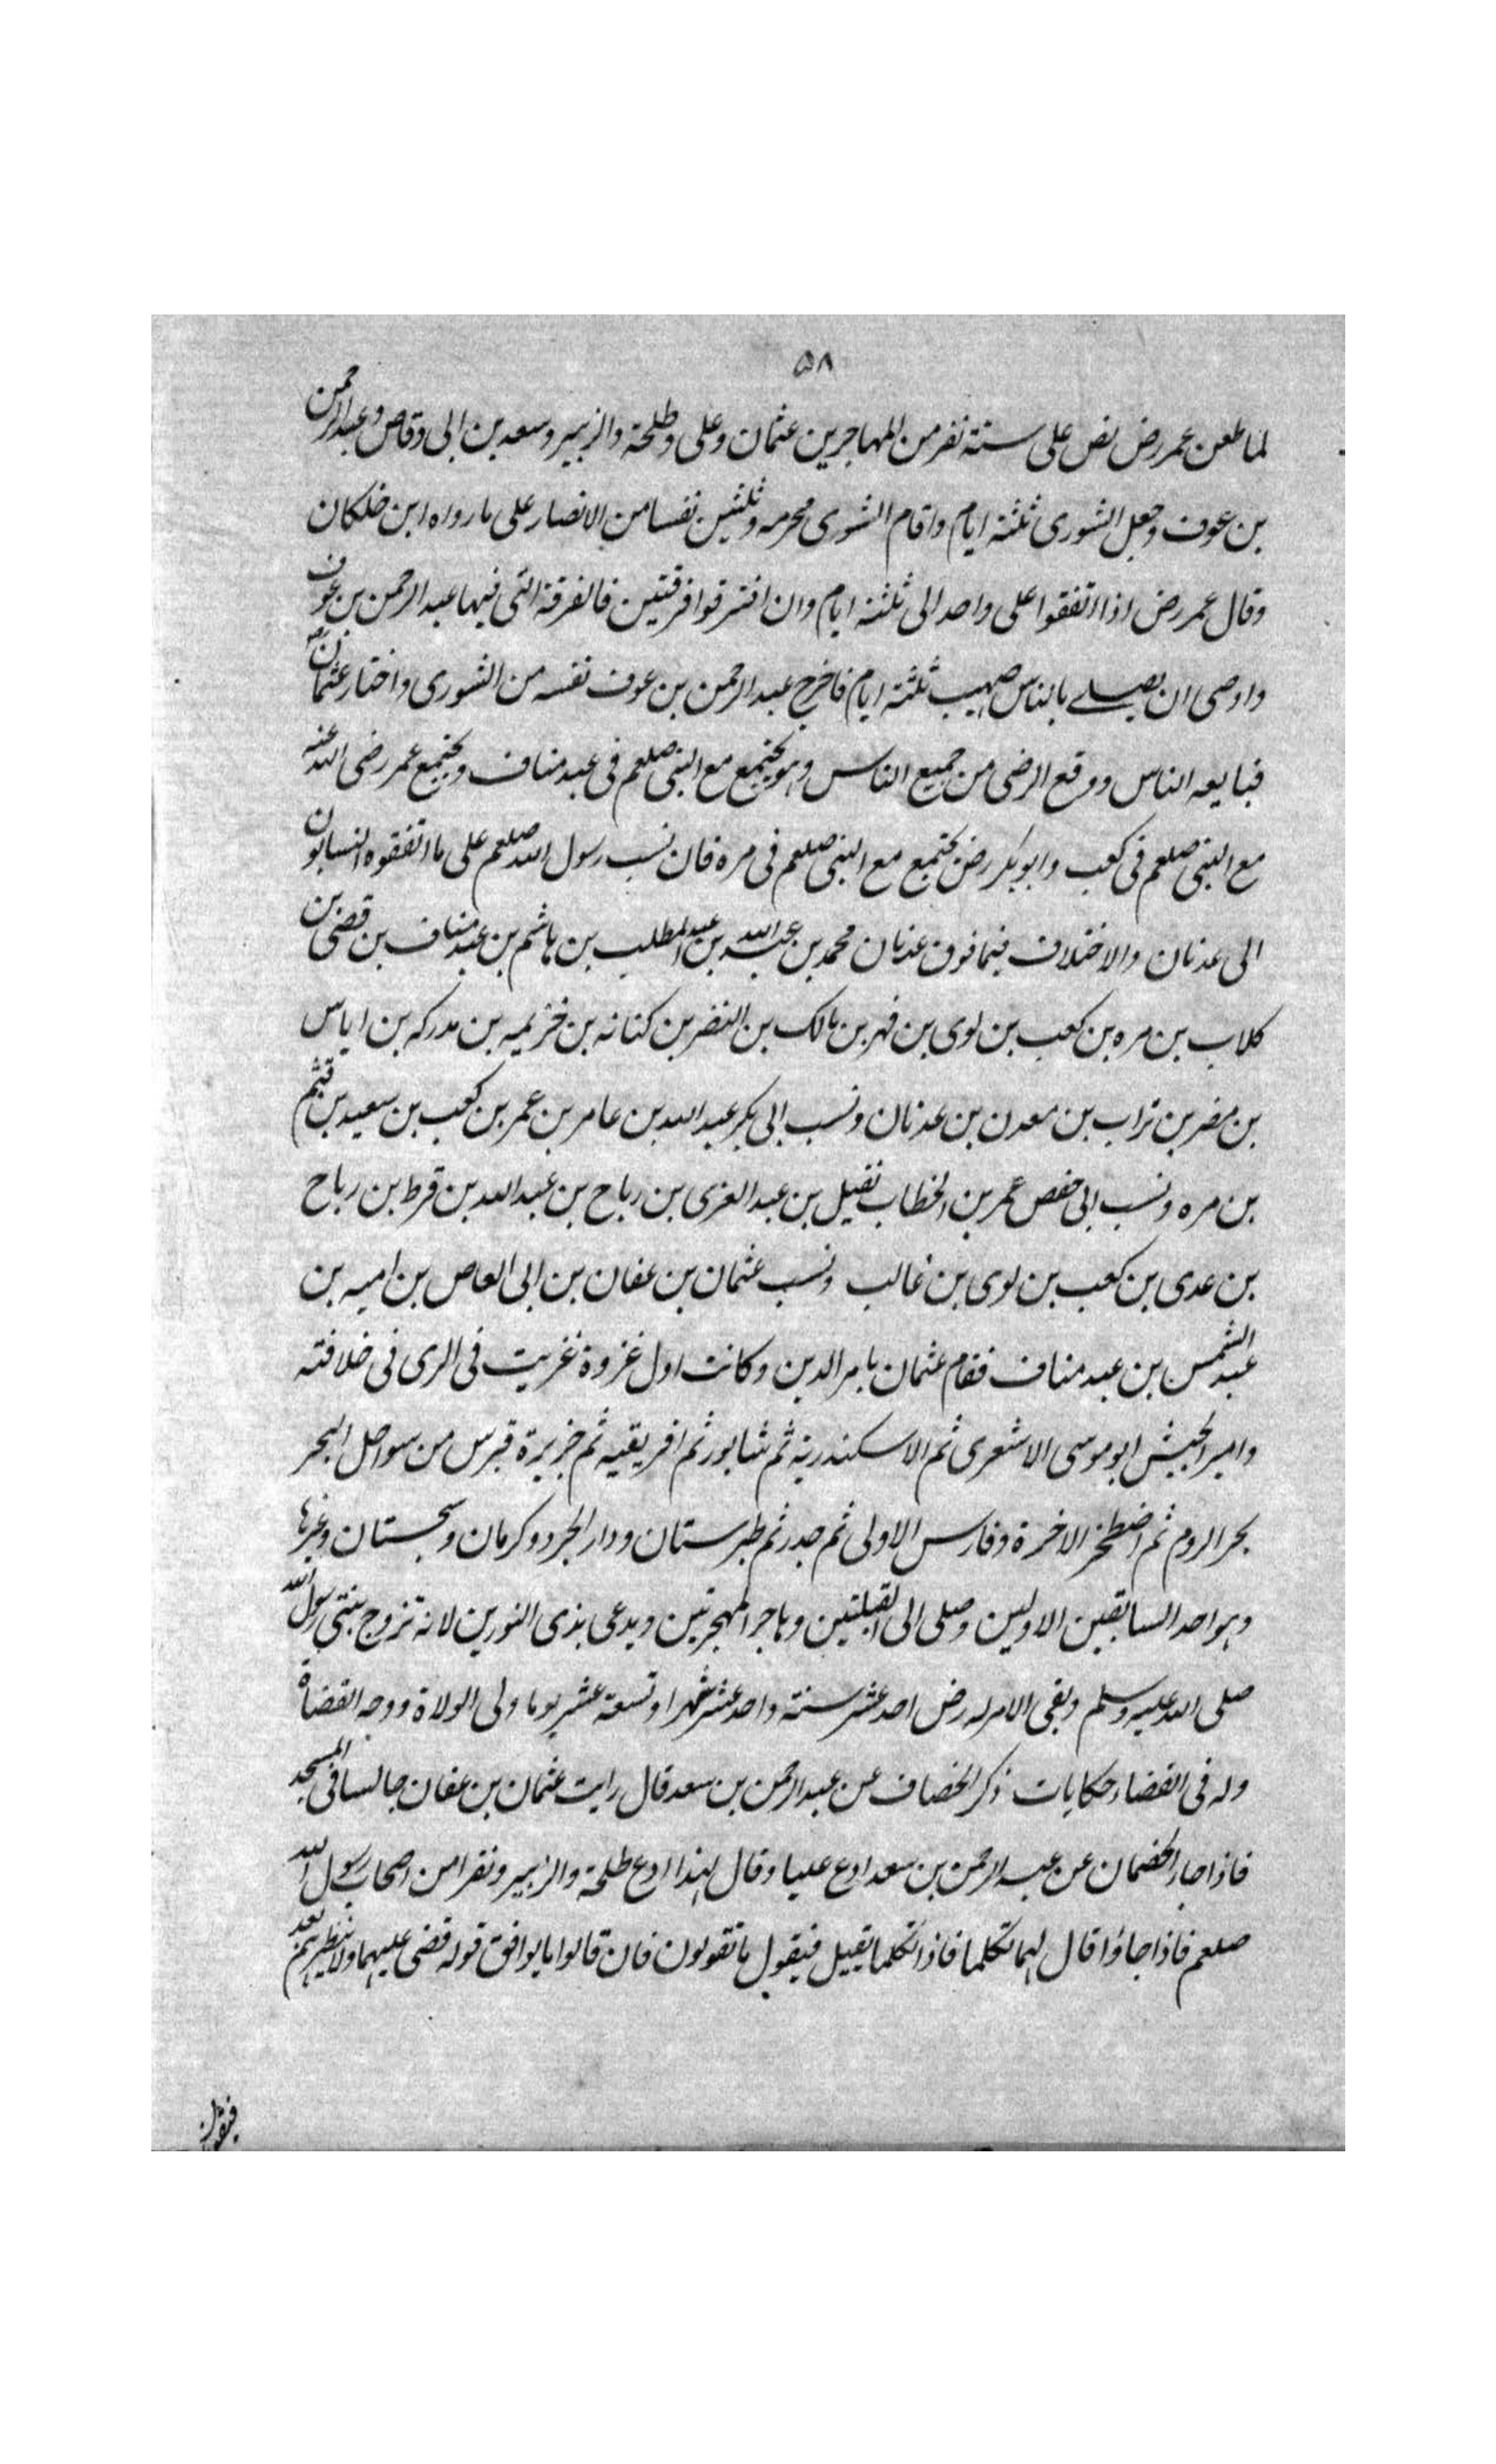 ۵۸
لما طعن عمر رض نص على ستة نفر من المهاجرين عثمان وعلى وطلحة والزبير وسعد بن ابى وقاص وعبد الرحمن
بن عوف وجعل الشورى ثلثة ايام واقام الشورى محرمه وثلثين نفسا من الانصار على ما رواه ابن خلكان
وقال عمر رض اذا اتفقوا على واحد الى ثلثة ايام وان افترقوا فرقتين فالفرقة التى فيها عبد الرحمن بن عوف
واوصى ان يصلے بالناس صهيب ثلثة ايام فاخرج عبد الرحمن بن عوف نفسه من الشورى واختار عثمان رض
فبايعه الناس ووقع الرضى من جميع الناس وهو يجتمع مع النبى صلعم فى عبد مناف ويجتمع عمر رضى الله عنه
مع النبى صلعم فى كعب وابو بكر رض يجتمع مع النبى صلعم فى مره فان نسب رسول الله صلعم على ما اتفقوه النسابون
الى عدنان والاختلاف فيما فوق عدنان محمد بن عبد الله بن عبد المطلب بن هاشم بن عبد مناف بن قصى بن
كلاب بن مره بن كعب بن لوى بن فهر بن مالك بن النضر بن كنانه بن خزيمه بن مدركه بن اياس
بن مضر بن تراب بن معدن بن عدنان ونسب ابى بكر عبد الله بن عامر بن عمر بن كعب بن سعيد بن قيثم
بن مره ونسب ابى حفص عمر بن الخطاب نفيل بن عبد العزى بن رباح بن عبد الله بن قرط بن رباح
بن عدى بن كعب بن لوى بن غالب ونسب عثمان بن عفان بن ابى العاص بن اميه بن
عبد الشمس بن عبد مناف فقام عثمان بامر الدين وكانت اول غزوة غزيت فى الرى فى خلافته
وامير الجيش ابو موسى الاشعرى ثم الاسكندرية ثم شابور ثم افريقيه ثم جزيرة قبرس من سواحل البحر
بحر الروم ثم اضطخر الاخرة وفارس الاولى ثم جدر ثم طبرستان ودار الجرد وكرمان وسجستان وغيرها
وهو احد السابقين الاولين وصلى الى القبلتين وهاجر الهجرتين ويدعى بذى النورين لانه تزوج بنتى رسول الله
صلى الله عليه وسلم وبقى الامر له رض احد عشر سنة واحد عشر شهرا وتسعة عشر يوما ولى الولاة ووجه القضاة
وله فى القضاء حكايات ذكر الخصاف عن عبد الرحمن بن سعد قال رايت عثمان بن عفان جالسا فى المسجد
فاذا جاء الخصمان عن عبد الرحمن بن سعد ادع عليا وقال لهذا ادع طلحة والزبير ونفرا من اصحاب رسول الله
صلعم فاذا جاؤا قال لهما تكلما فاذا تكلما يقبل فيقول ما تقولون فان قالوا ما يوافق قوله قضى عليهما ولا ينظرهم بعد
فيقول